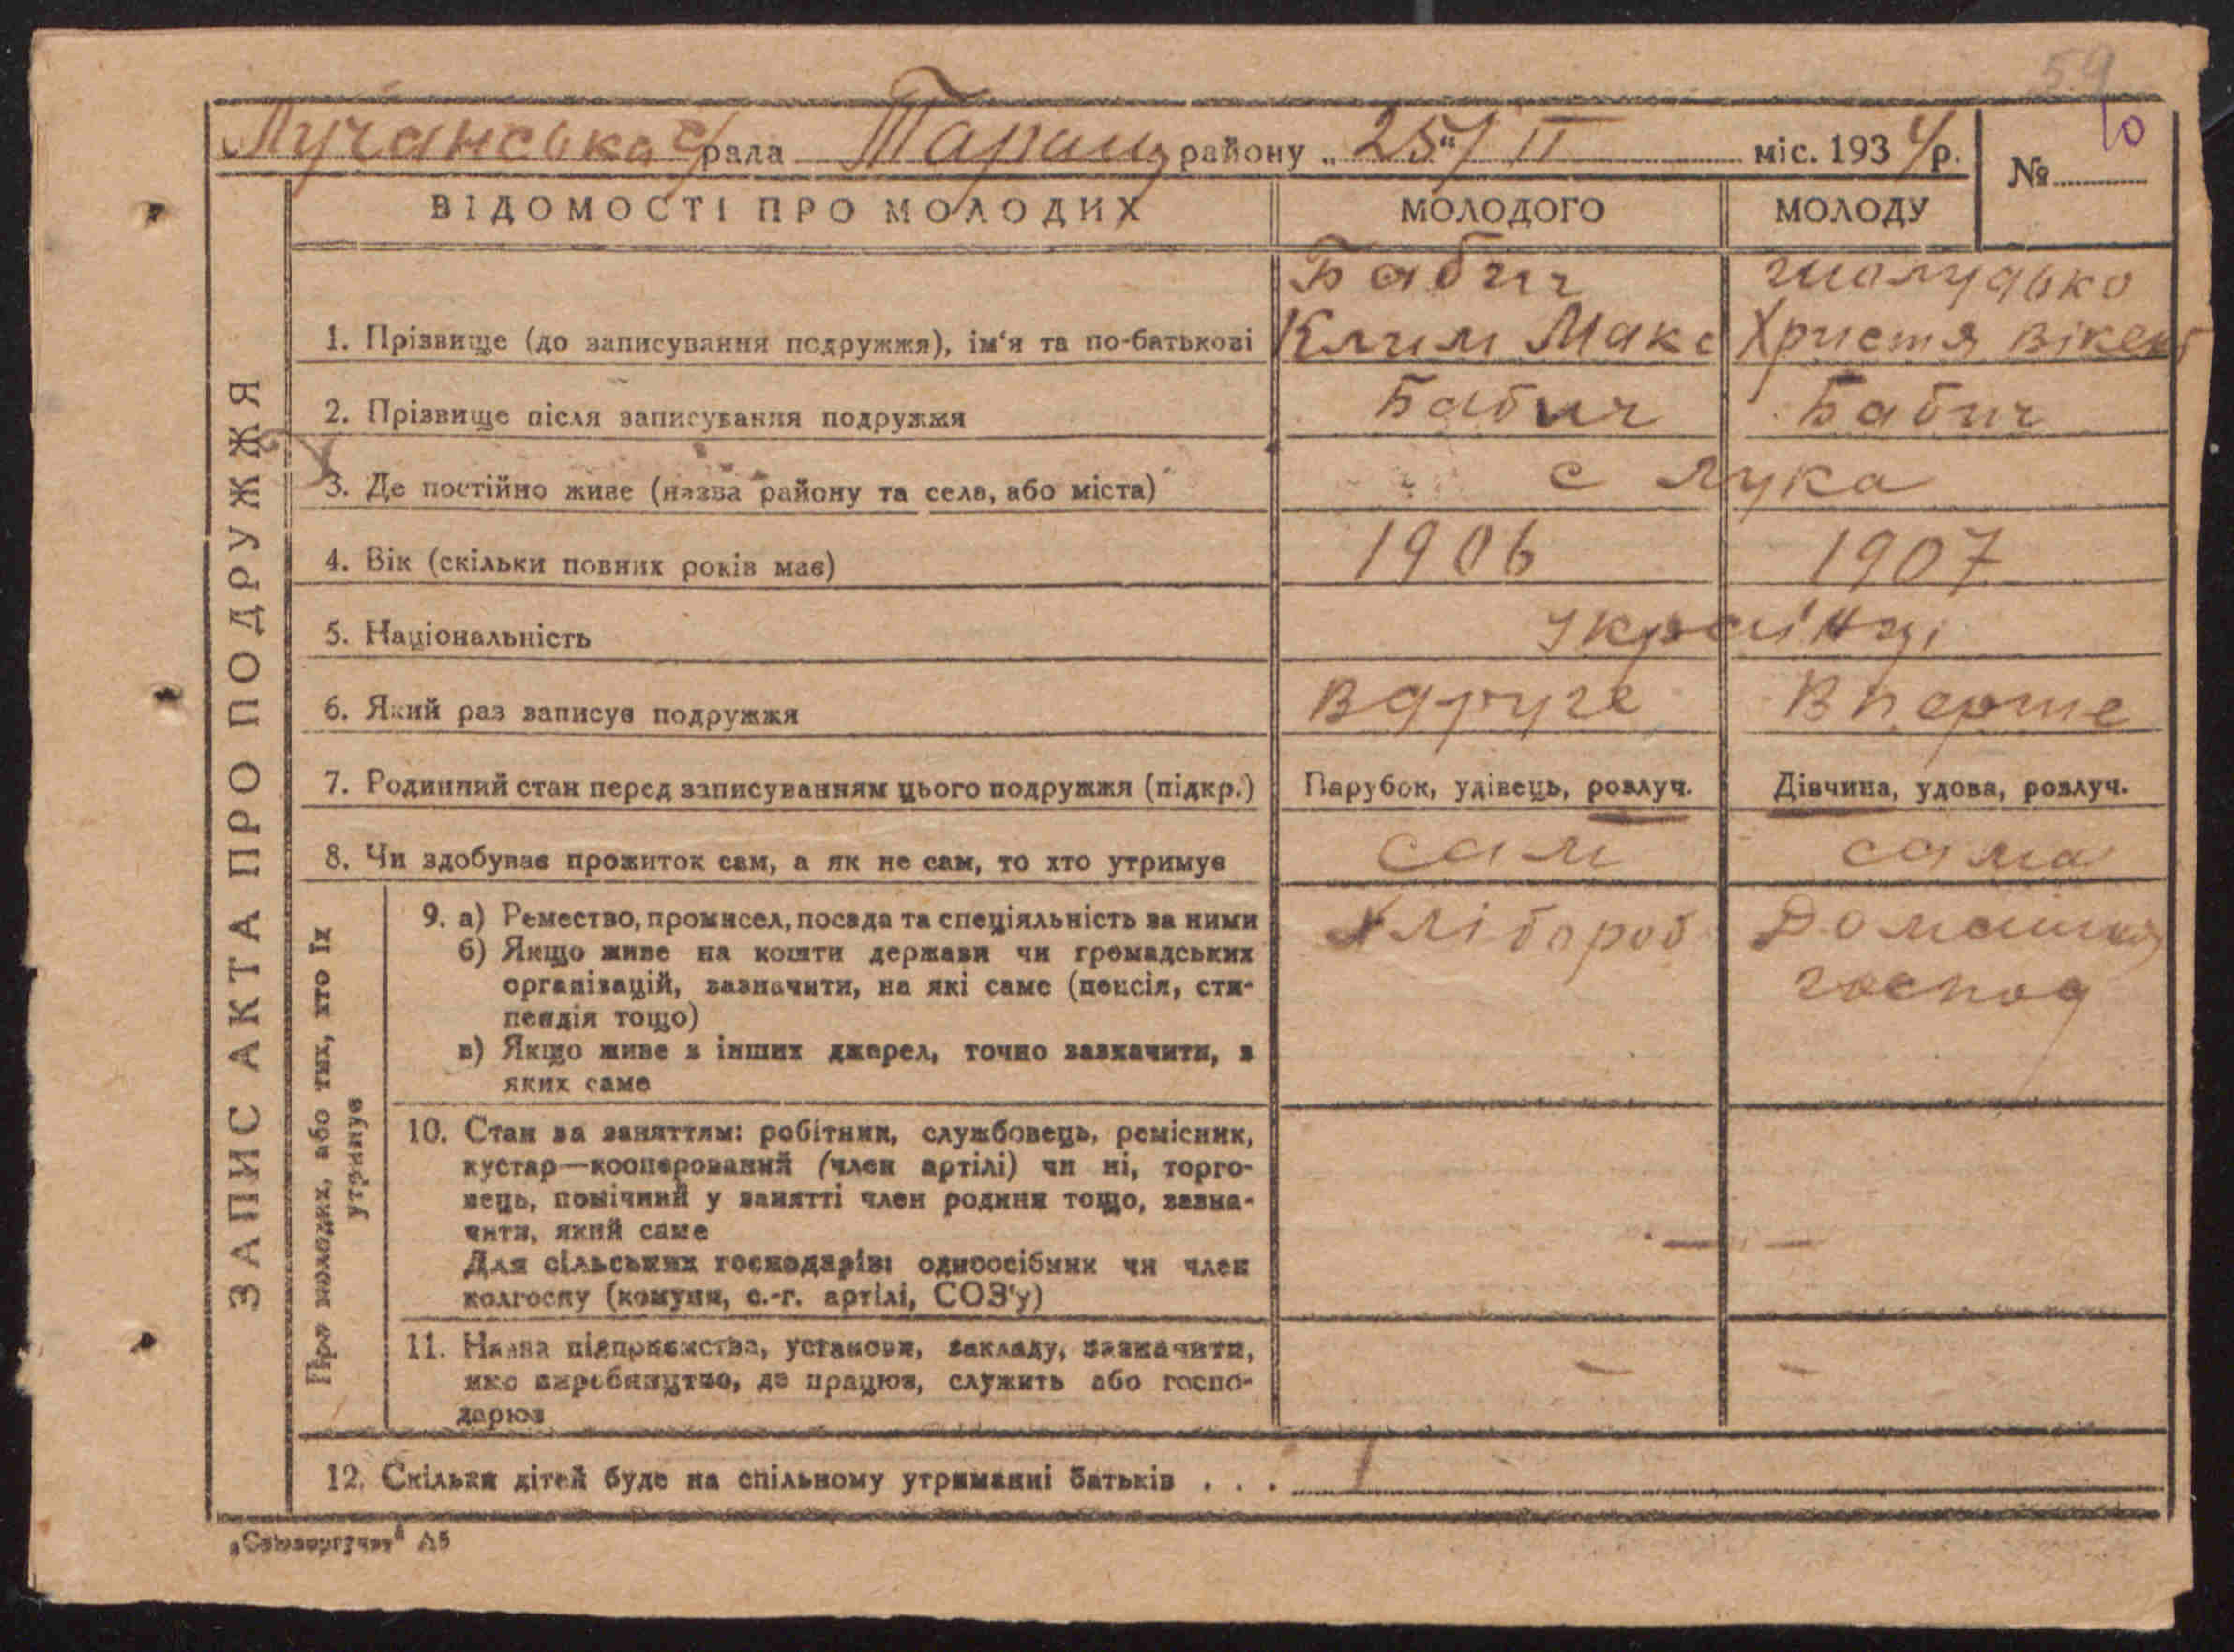 59
Лучанська с/рада Таращ району „25“/ II міс. 1934 р.
№ 10
ВІДОМОСТІ ПРО МОЛОДИХ МОЛОДОГО МОЛОДУ
ЗАПИС АКТА ПРО ПОДРУЖЖЯ
Бабич Шолудько
1. Прізвище (до записування подружжя), ім'я та по-батькові Клим Макс Христя Вікент
2. Прізвище після записування подружжя Бабич Бабич
3. Де постійно живе (назва району та села, або міста) с Лука
4. Вік (скільки повних років має) 1906 1907
5. Національність українці
6. Який раз записує подружжя Вдруге Вперше
7. Родинний стан перед записуванням цього подружжя (підкр.) Парубок, удівець, розлуч. Дівчина, удова, розлуч.
8. Чи здобував прожиток сам, а як не сам, то хто утримує сам сама
Про молодих, або тих, хто їх
утримує
9. а) Ремество, промисел, посада та спеціяльність за ними Хлібороб Домашня
б) Якщо живе на кошти держави чи громадських господ
організацій, зазначити, на які саме (пенсія, сти-
пендія тощо)
в) Якщо живе з інших джерел, точно зазначити, з
яких саме
10. Стан за заняттям: робітник, службовець, ремісник,
кустар—кооперований (член артілі) чи ні, торго-
вець, помічний у занятті член родини тощо, зазна-
чити, який саме — —
Для сільських господарів: одноосібник чи член
колгоспу (комуни, с.-г. артілі, СОЗ'у)
11. Назва підприємства, установи, закладу, зазначити, — —
яке виробництво, де працює, служить або госпо-
дарює
12. Скільки дітей буде на спільному утриманні батьків . . . 1
„Союзоргучет“ А5